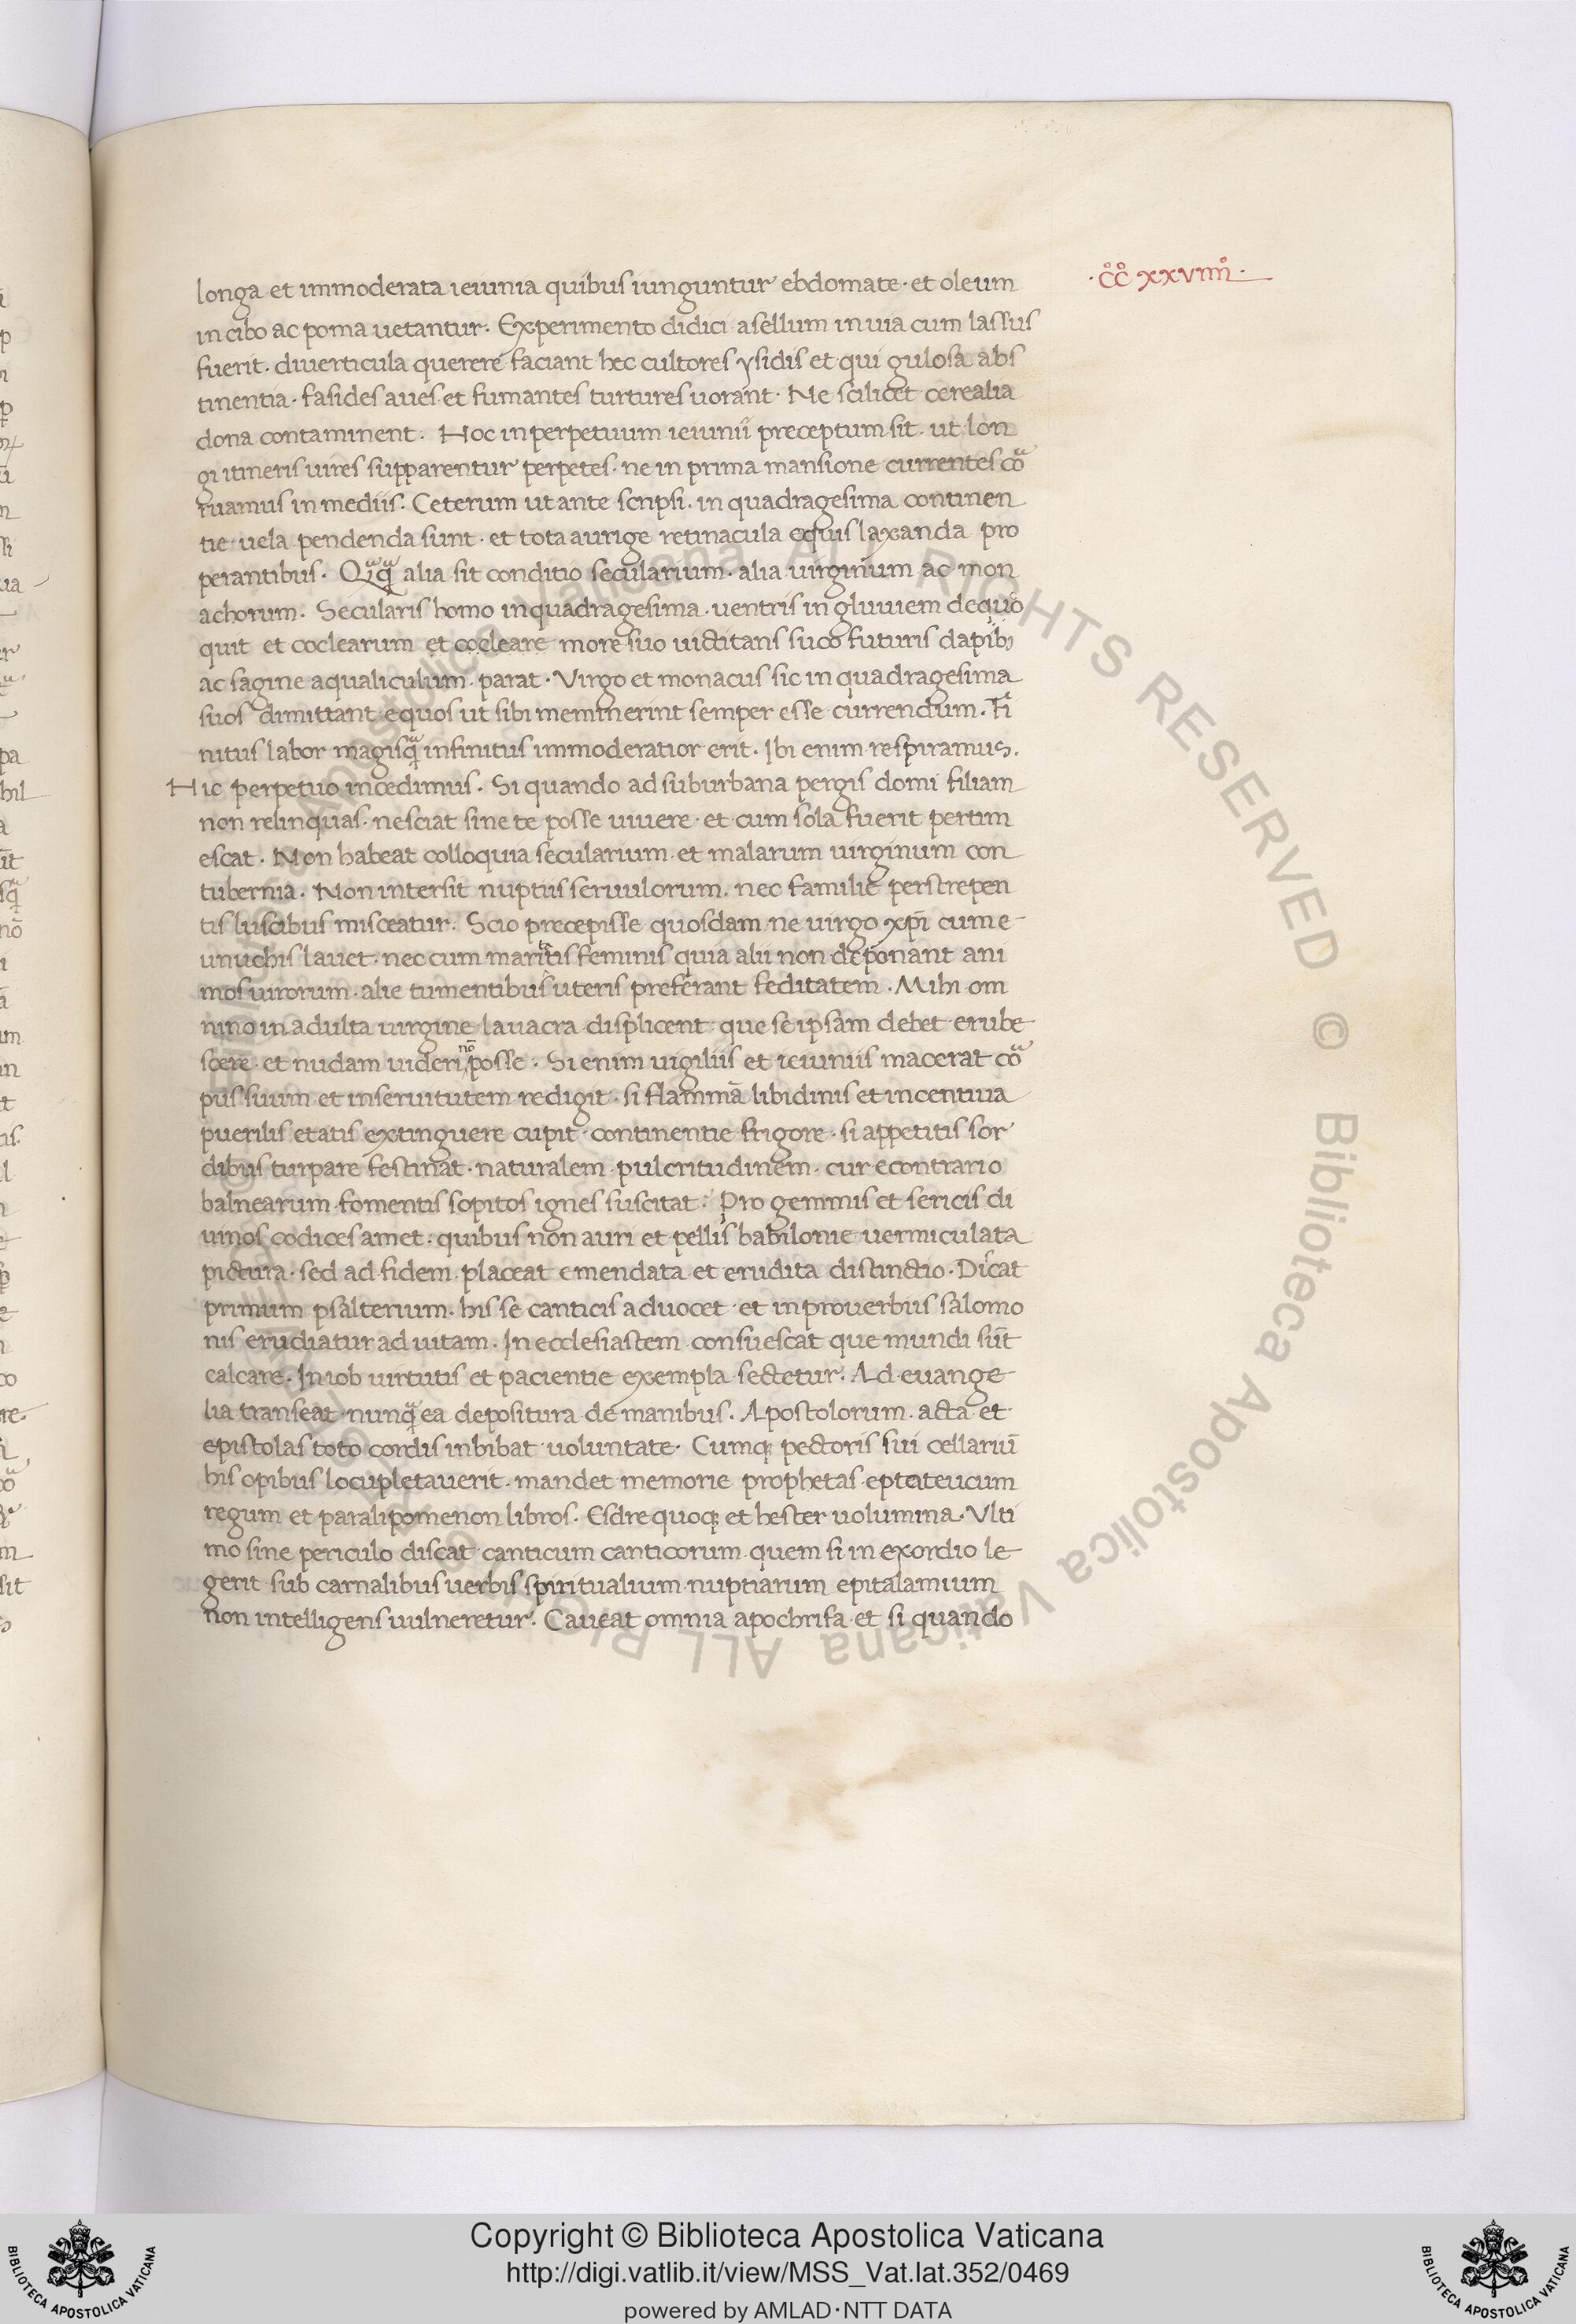 ·c̊c̊ xxviiii̊·
longa et immoderata ieiunia quibus iunguntur ebdomate · et oleum
in cibo ac poma uetantur. Experimento didici asellum in uia cum lassus
fuerit. diuerticula querere faciant hec cultores ysidis et qui gulosa abs
tinentia. fasides aues et fumantes turtures uorant. Ne scilicet cerealia
dona contaminent. Hoc in perpetuum ieiunii preceptum sit. ut lon
gi itineris uires supparentur perpetes. ne in prima mansione currentes co
ruamus in mediis. Ceterum ut ante scripsi. in quadragesima continen
tie uela pendenda sunt. et tota aurige retinacula equis laxanda pro
perantibus. Qͣq̃ alia sit conditio secularium. alia uirginum ac mon
achorum. Secularis homo in quadragesima. uentris in gluuiem dequo
quit et coclearum et cocleare more suo uictitans suco futuris dapibꝫ
ac sagine aqualiculum. parat. Virgo et monacus sic in quadragesima
suos dimittant equos ut sibi meminerint semper esse currendum. Fi
nitus labor magisq̃ infinitus immoderatior erit. Ibi enim respiramus.
Hic perpetuo incedimus. Si quando ad suburbana pergis domi filiam
non relinquas. nesciat sine te posse uiuere. et cum sola fuerit pertim
escat. Non habeat colloquia secularium et malarum uirginum con
tubernia. Non intersit nuptiis seruulorum. nec familie perstrepen
tis lusibus misceatur. Scio precepisse quosdam ne uirgo xp̄i cum e-
unuchis lauet. nec cum maritis feminis quia alii non deponant ani
mos uirorum. alie tumentibus uteris preferant feditatem. Mihi om
nino in adulta uirgine lauacra displicent que se ipsam debet erube
scere. et nudam uideri nō posse. Si enim uigiliis et ieiuniis macerat co
pus suum et in seruitutem redigit. si flammā libidinis et incentiua
puerilis etatis extinguere cupit continentie frigore. si appetitis sor
dibus turpare festinat. naturalem pulcritudinem. cur econtrario
balnearum fomentis sopitos ignes suscitat. Pro gemmis et sericis di
uinos codices amet. quibus non auri et pellis babilonie uermiculata
pictura. sed ad fidem placeat emendata et erudita distinctio. Dicat
primum psalterium. his se canticis aduocet et in prouerbiis salomo
nis erudiatur ad uitam. In ecclesiastem consuescat que mundi sūt
calcare. In iob uirtutis et pacientie exempla sectetur. Ad euange
lia transeat nunq̃ ea depositura de manibus. Apostolorum acta et
epistolas toto cordis inbibat uoluntate. Cumqꝫ pectoris sui cellariū
his opibus locupletauerit. mandet memorie prophetas eptateucum
regum et paralipomenon libros. Esdre quoqꝫ et hester uolumina. Vlti
mo sine periculo discat canticum canticorum quem si in exordio le
gerit sub carnalibus uerbis spiritualium nuptiarum epitalamium
non intelligens uulneretur. Caueat omnia apochrifa et si quando
Copyright © Biblioteca Apostolica Vaticana
http://digi.vatlib.it/view/MSS_Vat.lat.352/0469
powered by AMLAD·NTT DATA